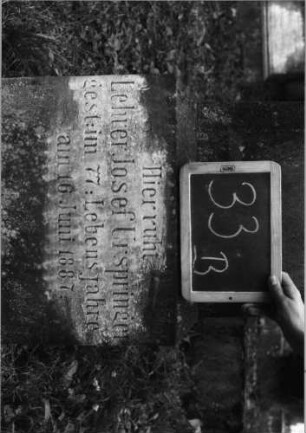 Hier ruht
Lehrer Josef Ursprunger
gest: im 77. Lebensjahre
am 16. Juni 1887
33
B